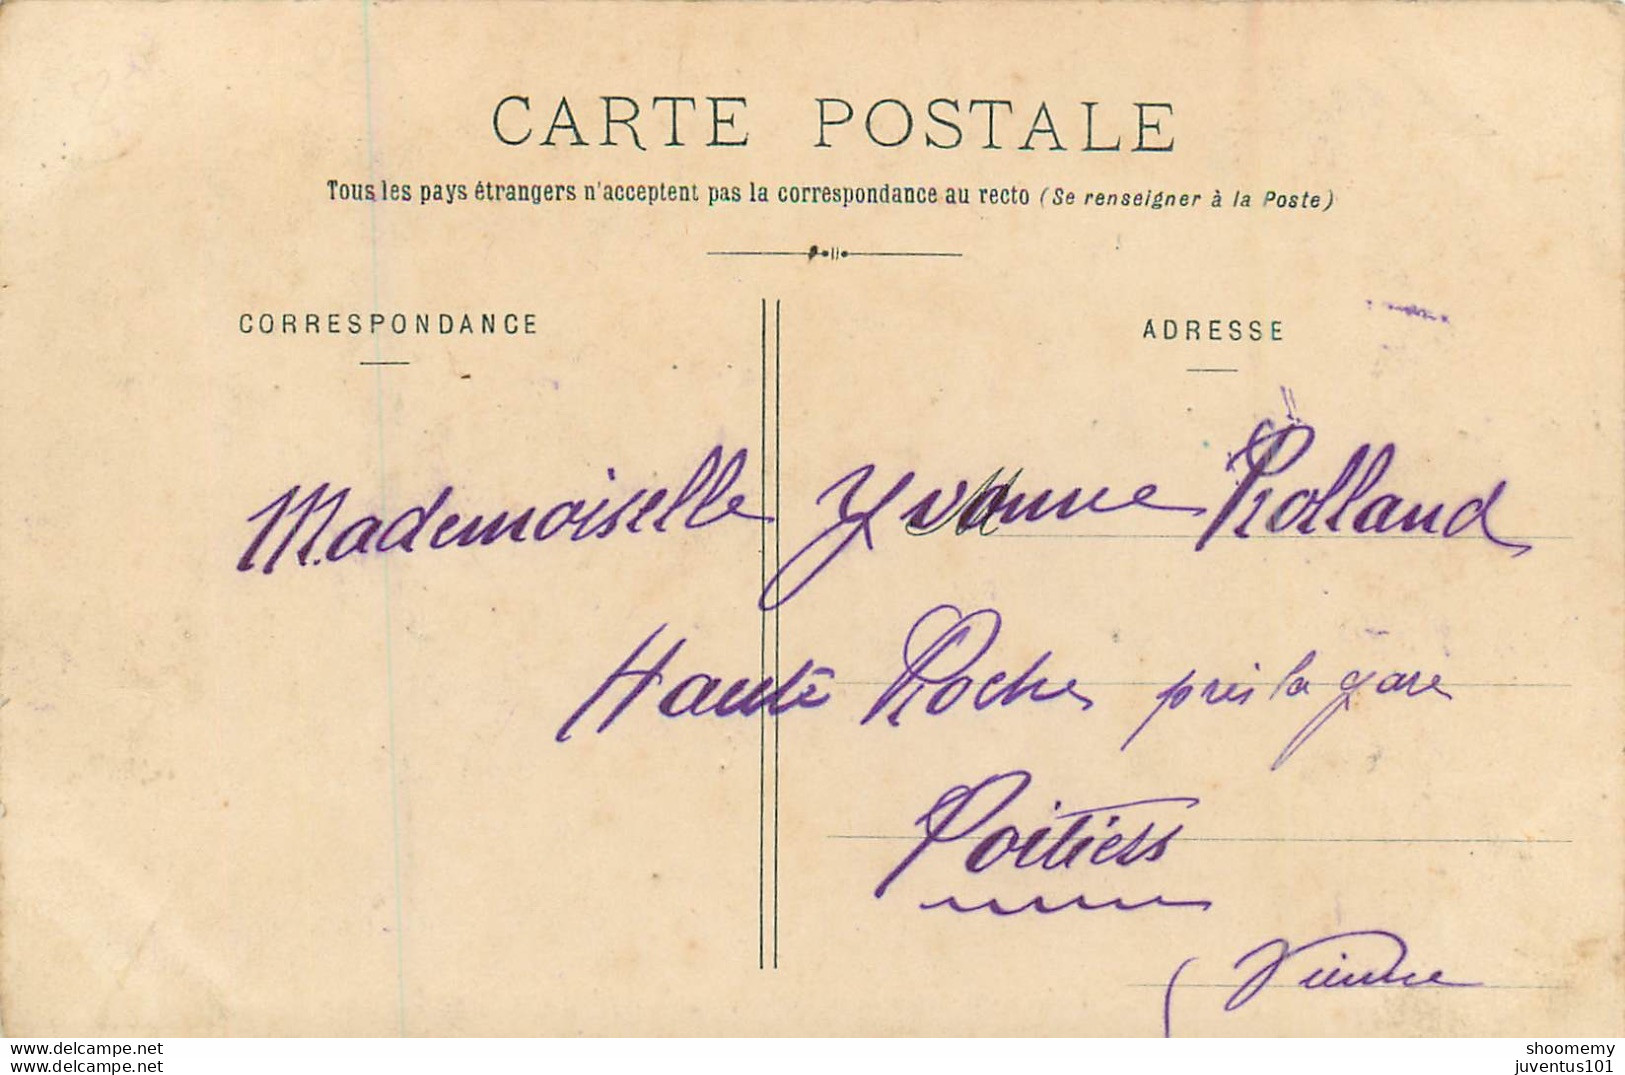 CARTE POSTALE
Tous les pays étrangers n'acceptent pas la correspondance au recto (Se renseigner à la Poste)
CORRESPONDANCE
ADRESSE
Mademoiselle Yvonne Rolland
Haute Roche près la gare
Poitiers
(Vienne
www.delcampe.net
www.delcampe.com
shoomemy
juventus101